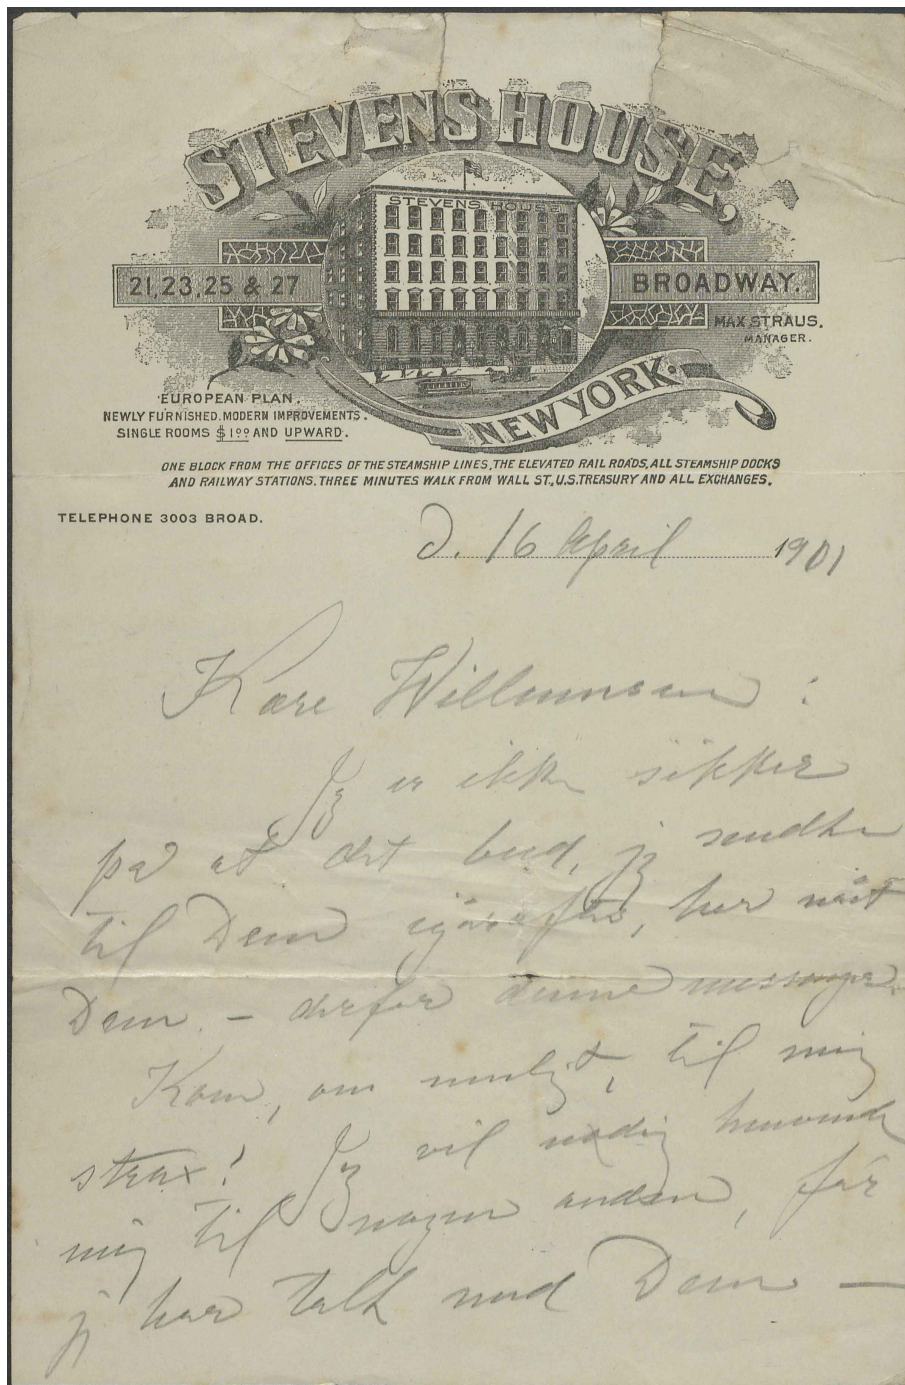 STEVENS HOUSE,
STEVENS HOUSE
21, 23, 25 & 27
BROADWAY.
MAX STRAUS.
MANAGER.
NEW YORK.
EUROPEAN PLAN.
NEWLY FURNISHED. MODERN IMPROVEMENTS.
SINGLE ROOMS $1.00 AND UPWARD.
ONE BLOCK FROM THE OFFICES OF THE STEAMSHIP LINES, THE ELEVATED RAIL ROADS, ALL STEAMSHIP DOCKS
AND RAILWAY STATIONS. THREE MINUTES WALK FROM WALL ST., U.S. TREASURY AND ALL EXCHANGES.
TELEPHONE 3003 BROAD.
D. 16 April 1901
Kære Willumsen:
Jeg er ikke sikker
på at det bud, jeg sendte
til Dem, har nåt
Dem. – derfor denne messenger.
Kom, om muligt, til mig
strax! Jeg vil nødig henvende
mig til nogen anden, før
jeg har talt med Dem –